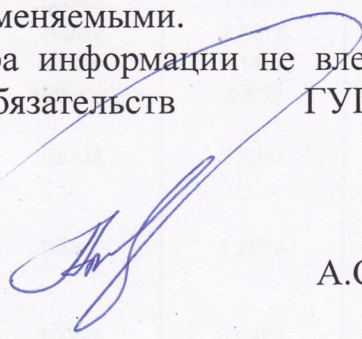 меняемыми.
ра информации не вле
бязательств ГУП
А.С